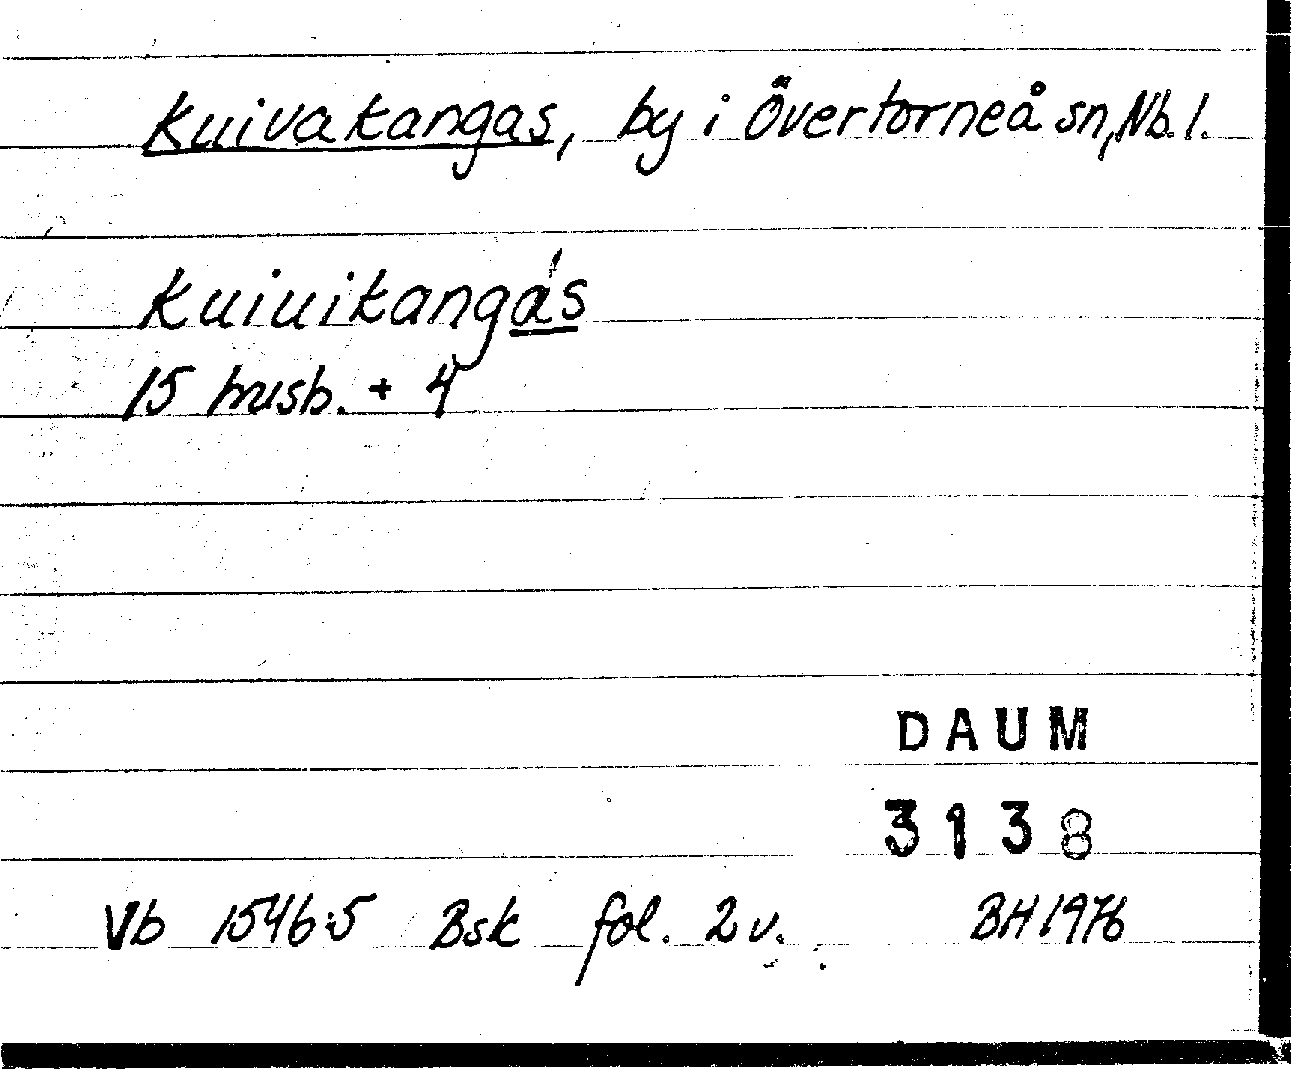 Kuivakangas, by i Övertorneå sn, Nb. l.
Kuiuikangas
15 husb. + 4
DAUM
3138
Vb 1546:5 Bsk fol. 2 v. BH 1976